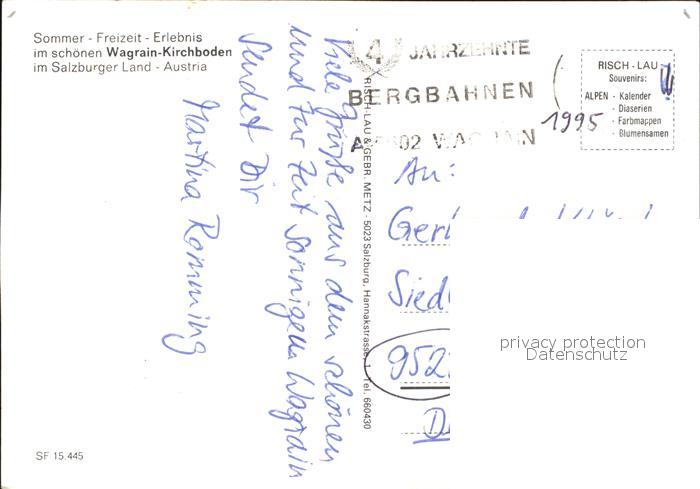 Sommer - Freizeit - Erlebnis
im schönen Wagrain-Kirchboden
im Salzburger Land - Austria
Viele Grüße aus dem schönen
und zur Zeit sonnigen Wagrain
sendet Dir
Martina Romming
SF 15.445
RISCH-LAU & GEBR. METZ - 5023 Salzburg, Hannakstrasse 1 - Tel. 660430
4 JAHRZEHNTE
BERGBAHNEN
WAGRAIN
RISCH-LAU
Souvenirs:
ALPEN - Kalender
- Diaserien
- Farbmappen
- Blumensamen
1995
An:
privacy protection
Datenschutz